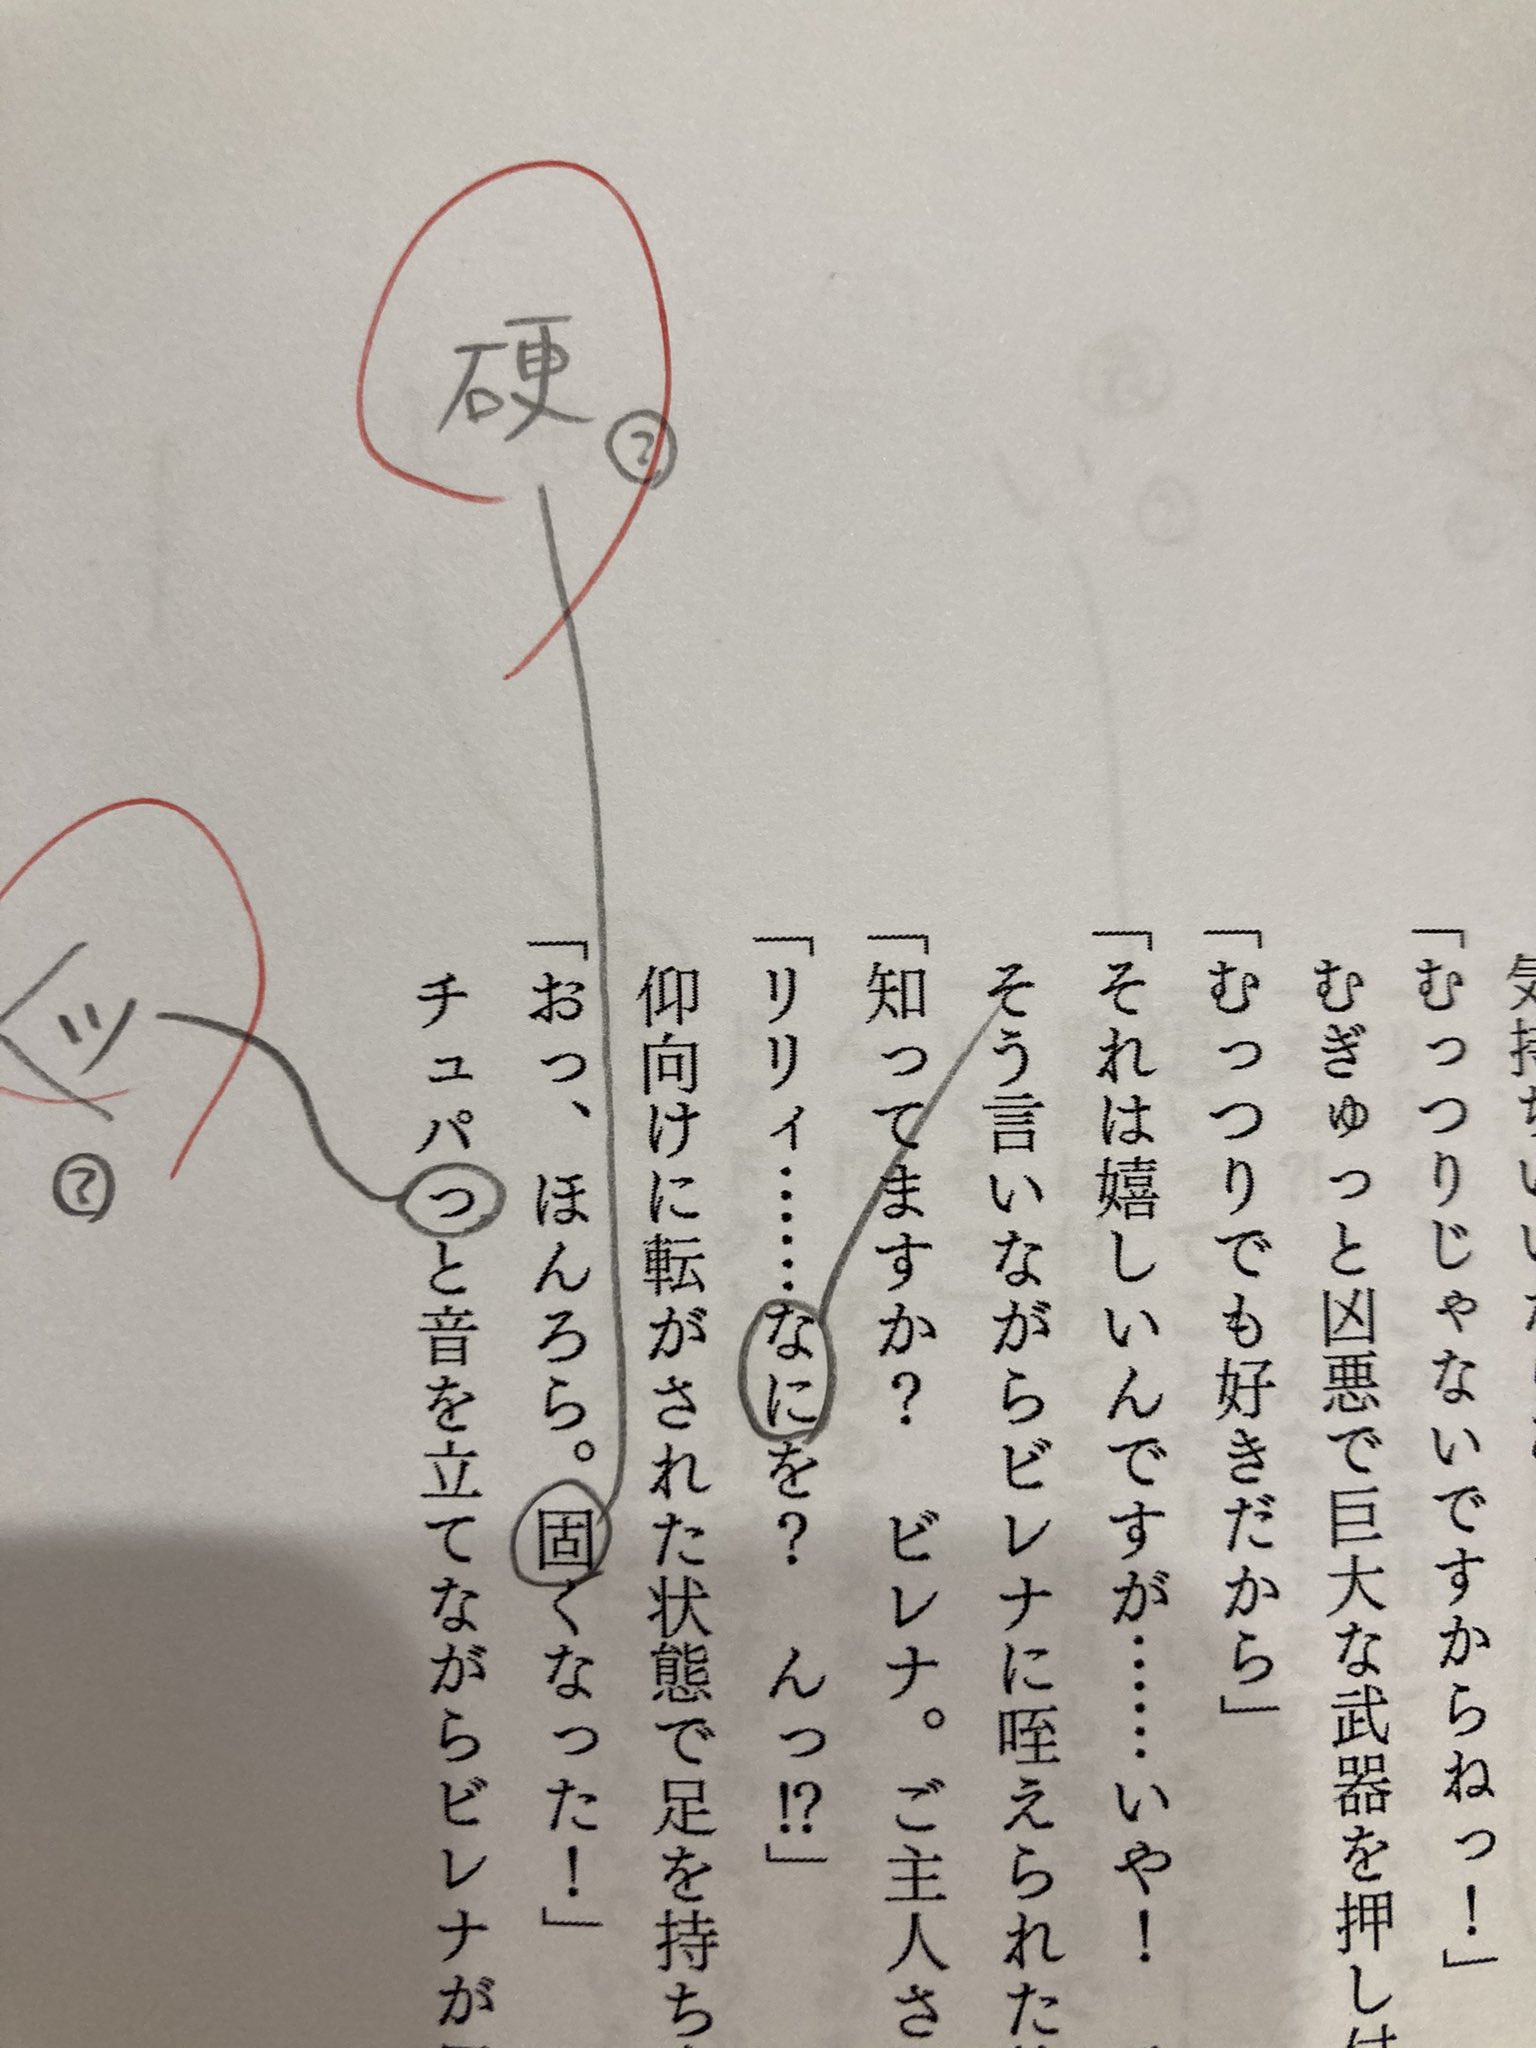 硬
?
気持ちいい
「むっつりじゃないですからねっ！」
むぎゅっと凶悪で巨大な武器を押し
「むっつりでも好きだから」
「それは嬉しいんですが……いや！
そう言いながらビレナに咥えられた
「知ってますか？　ビレナ。ご主人さ
「リリィ……なにを？　んっ⁉」
仰向けに転がされた状態で足を持ち
「おっ、ほんろら。固くなった！」
チュパっと音を立てながらビレナが
ッ
?